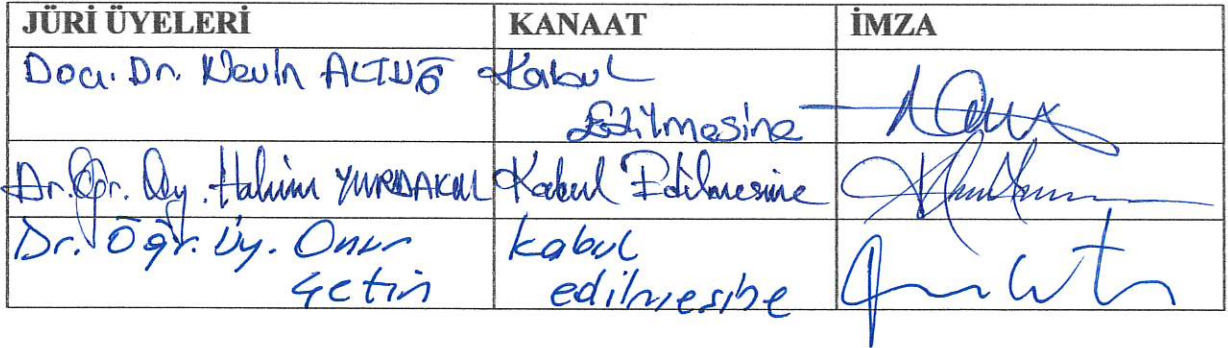 JÜRİ ÜYELERİ KANAAT İMZA
Doç. Dr. Nevin ALTUĞ Kabul
Edilmesine
Dr. Öğr. Üy. Halim YURDAKUL Kabul Edilmesine
Dr. Öğr. Üy. Onur kabul
Çetin edilmesine